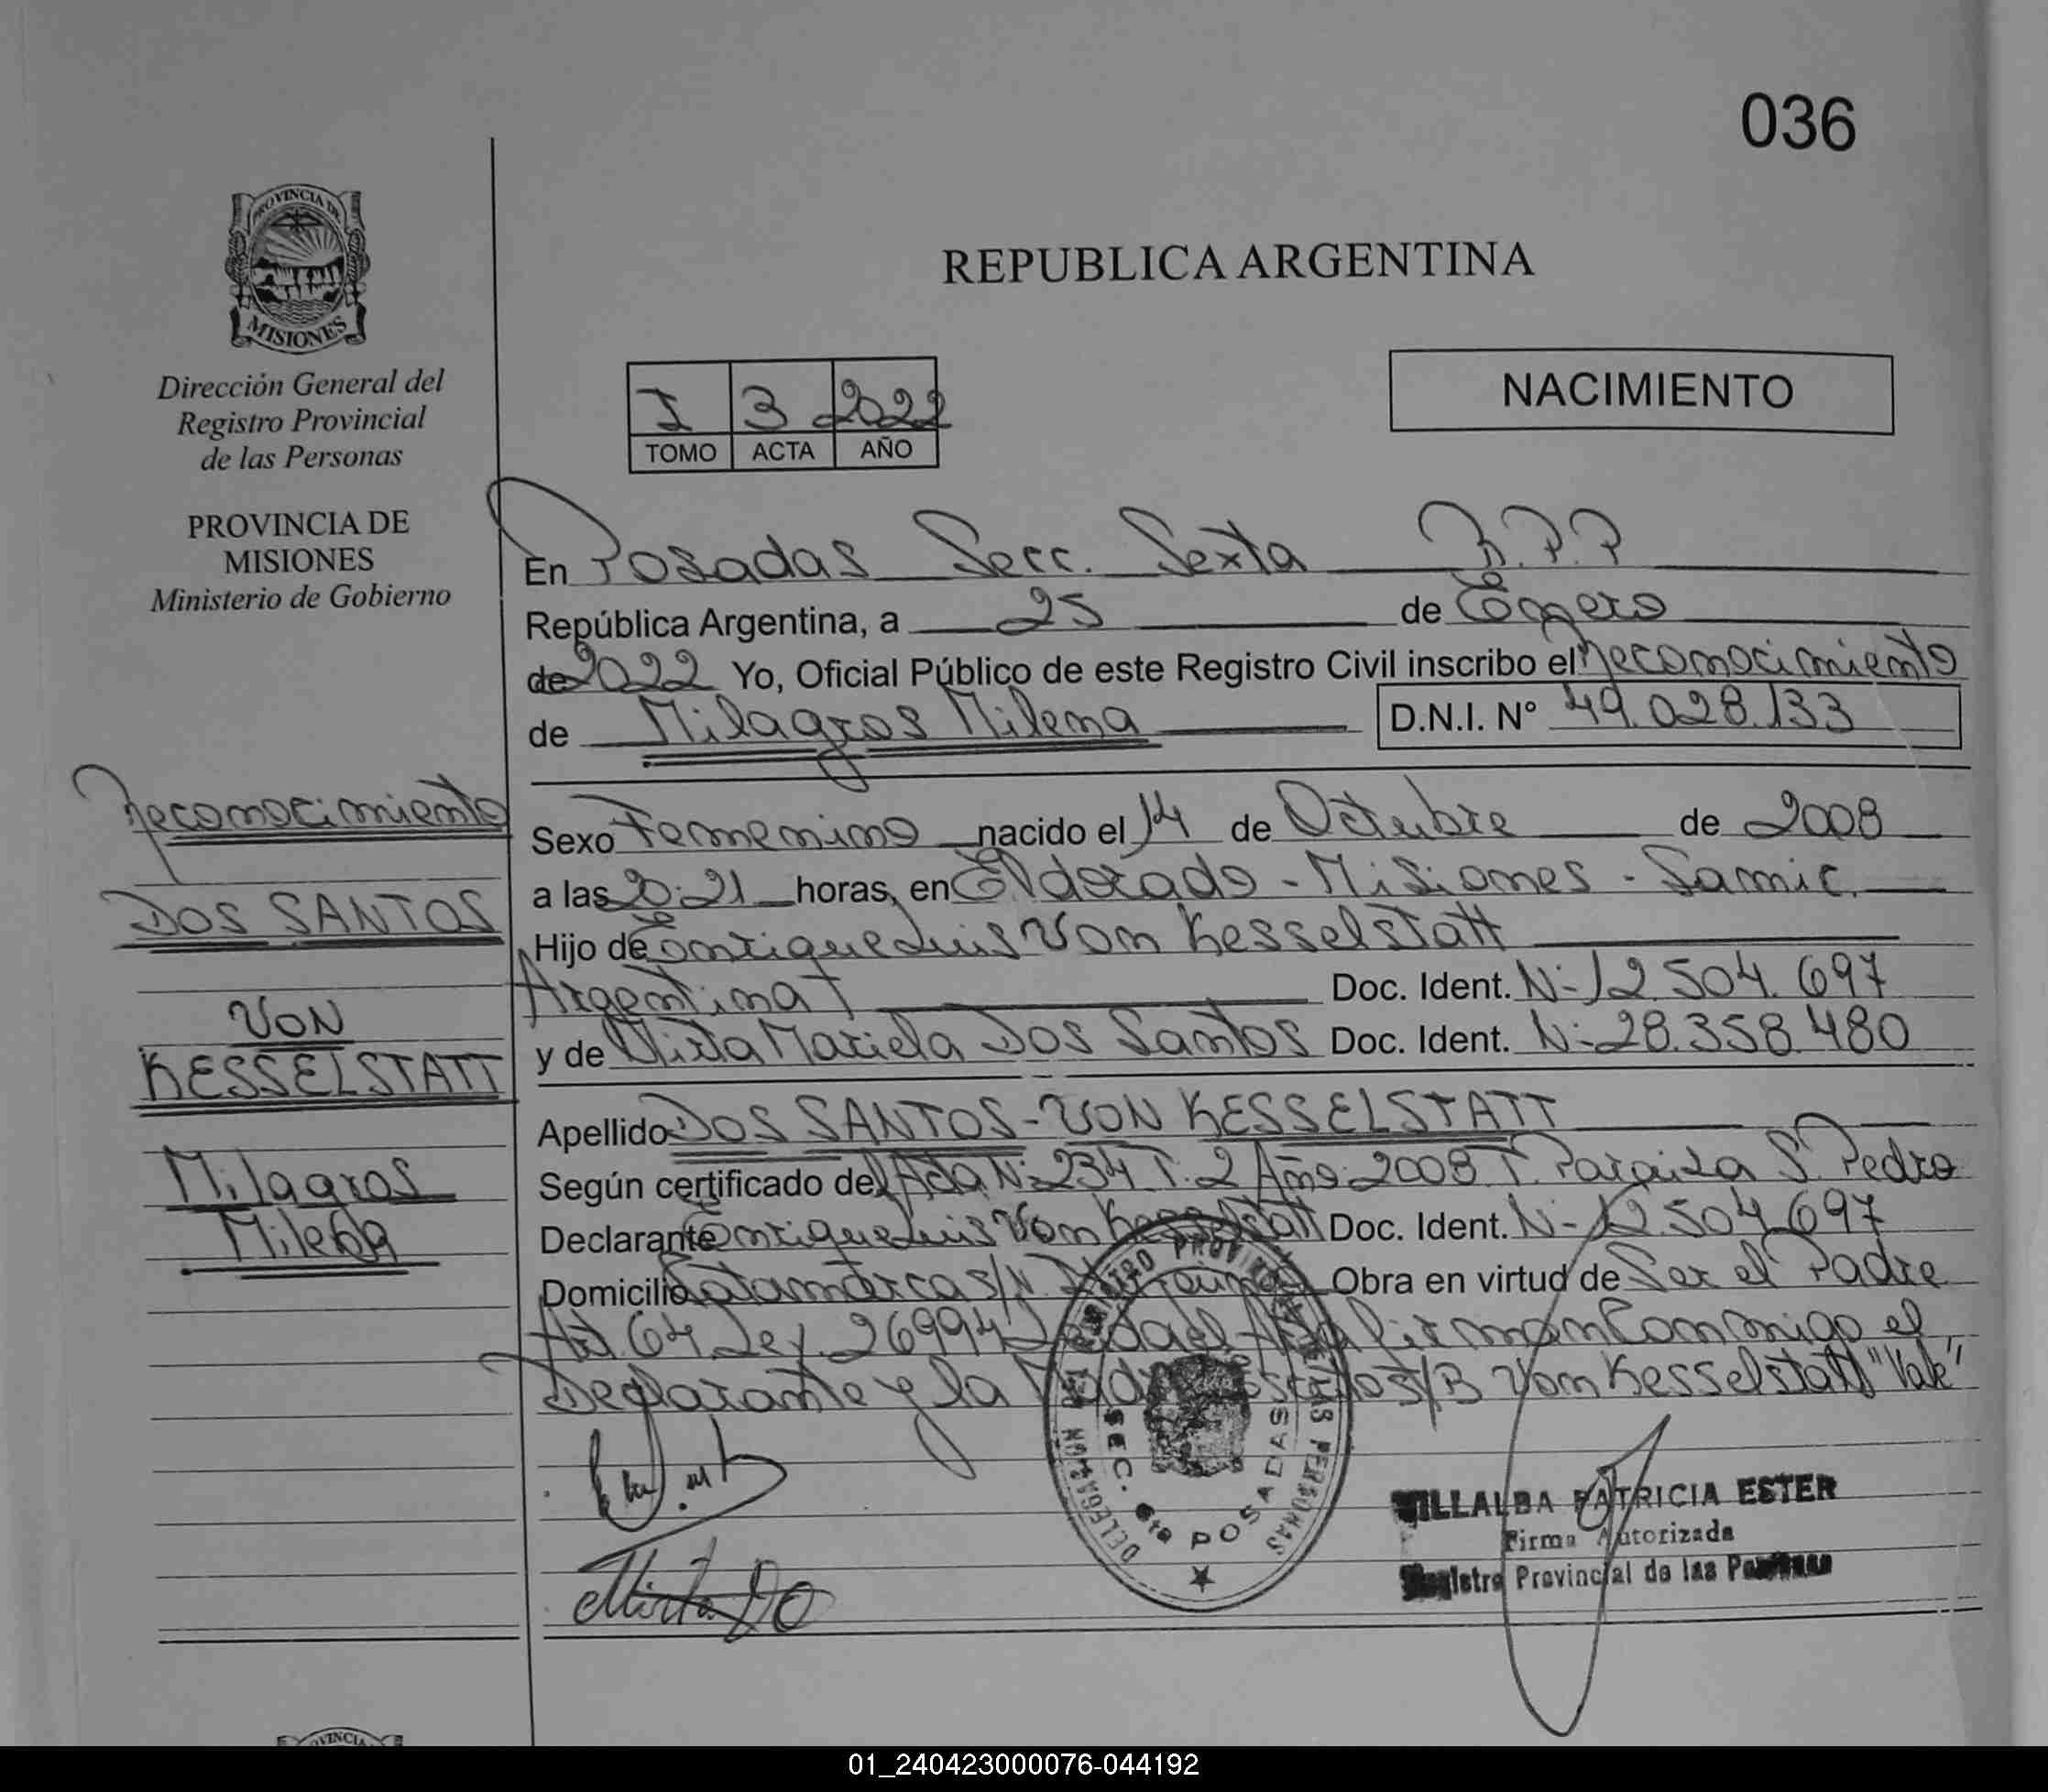 036
PROVINCIA DE
MISIONES
Dirección General del
Registro Provincial
de las Personas
PROVINCIA DE
MISIONES
Ministerio de Gobierno
REPUBLICA ARGENTINA
I 3 2022
TOMO ACTA AÑO
NACIMIENTO
En Posadas Secc. Sexta R.P.P
República Argentina, a 25 de Enero
de 2022 Yo, Oficial Público de este Registro Civil inscribo el Reconocimiento
de Milagros Milena D.N.I. N° 49.028.133
Reconocimiento
DOS SANTOS
VON
KESSELSTATT
Milagros
Milena
Sexo Femenino nacido el 14 de Octubre de 2008
a las 20:21 horas, en Eldorado - Misiones - Samic.
Hijo de Enrique Luis Von Kesselstatt
Argentina Doc. Ident. N- 12.504.697
y de Mirta Mariela Dos Santos Doc. Ident. N- 28.358.480
Apellido DOS SANTOS - VON KESSELSTATT
Según certificado del Acta N- 234 T. 2 Año 2008 Paraiza S. Pedro
Declarante Enrique Luis Von Kesselstatt Doc. Ident. N- 12.504.697
Domicilio Catamarca s/N. Obra en virtud de Ser el Padre
Art. 64 Ley 26994 el firman Conmigo el
Declarante y la S/B Von Kesselstatt "Vale"
REGISTRO PROVINCIAL DE LAS PERSONAS
DELEGACION
SEC. 6ta POSADAS
Mirta DO
VILLALBA PATRICIA ESTER
Firma Autorizada
Registro Provincial de las Personas
PROVINCIA
01_240423000076-044192